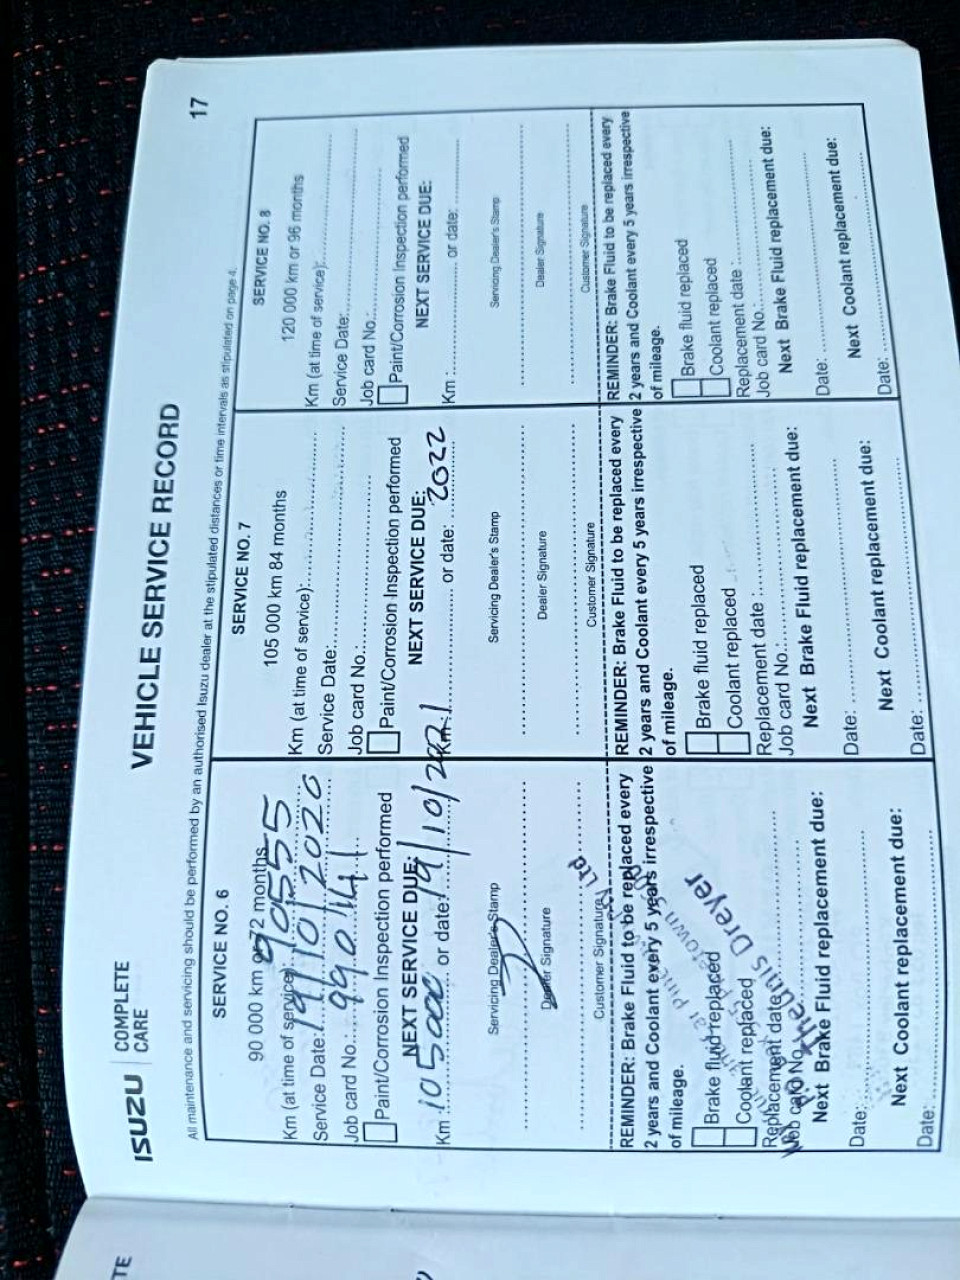 ISUZU
COMPLETE
CARE
VEHICLE SERVICE RECORD
17
All maintenance and servicing should be performed by an authorised Isuzu dealer at the stipulated distances or time intervals as stipulated on page 4.
SERVICE NO. 6
90 000 km or 72 months
Km (at time of service): 90555
Service Date: 19/10/2020
Job card No.: 99014
Paint/Corrosion Inspection performed
NEXT SERVICE DUE:
Km 105000 or date: 19/10/2021
Servicing Dealer's Stamp
Dealer Signature
Customer Signature
REMINDER: Brake Fluid to be replaced every
2 years and Coolant every 5 years irrespective
of mileage.
Brake fluid replaced
Coolant replaced
Replacement date
Job card No.
Next Brake Fluid replacement due:
Date:
Next Coolant replacement due:
Date:
Ltd
Theunis Dreyer
SERVICE NO. 7
105 000 km 84 months
Km (at time of service):
Service Date:
Job card No.:
Paint/Corrosion Inspection performed
NEXT SERVICE DUE:
Km: or date: 2022
Servicing Dealer's Stamp
Dealer Signature
Customer Signature
REMINDER: Brake Fluid to be replaced every
2 years and Coolant every 5 years irrespective
of mileage.
Brake fluid replaced
Coolant replaced
Replacement date :
Job card No.:
Next Brake Fluid replacement due:
Date:
Next Coolant replacement due:
Date:
SERVICE NO. 8
120 000 km or 96 months
Km (at time of service):
Service Date:
Job card No.:
Paint/Corrosion Inspection performed
NEXT SERVICE DUE:
Km : or date:
Servicing Dealer's Stamp
Dealer Signature
Customer Signature
REMINDER: Brake Fluid to be replaced every
2 years and Coolant every 5 years irrespective
of mileage.
Brake fluid replaced
Coolant replaced
Replacement date :
Job card No.:
Next Brake Fluid replacement due:
Date:
Next Coolant replacement due:
Date:
TE